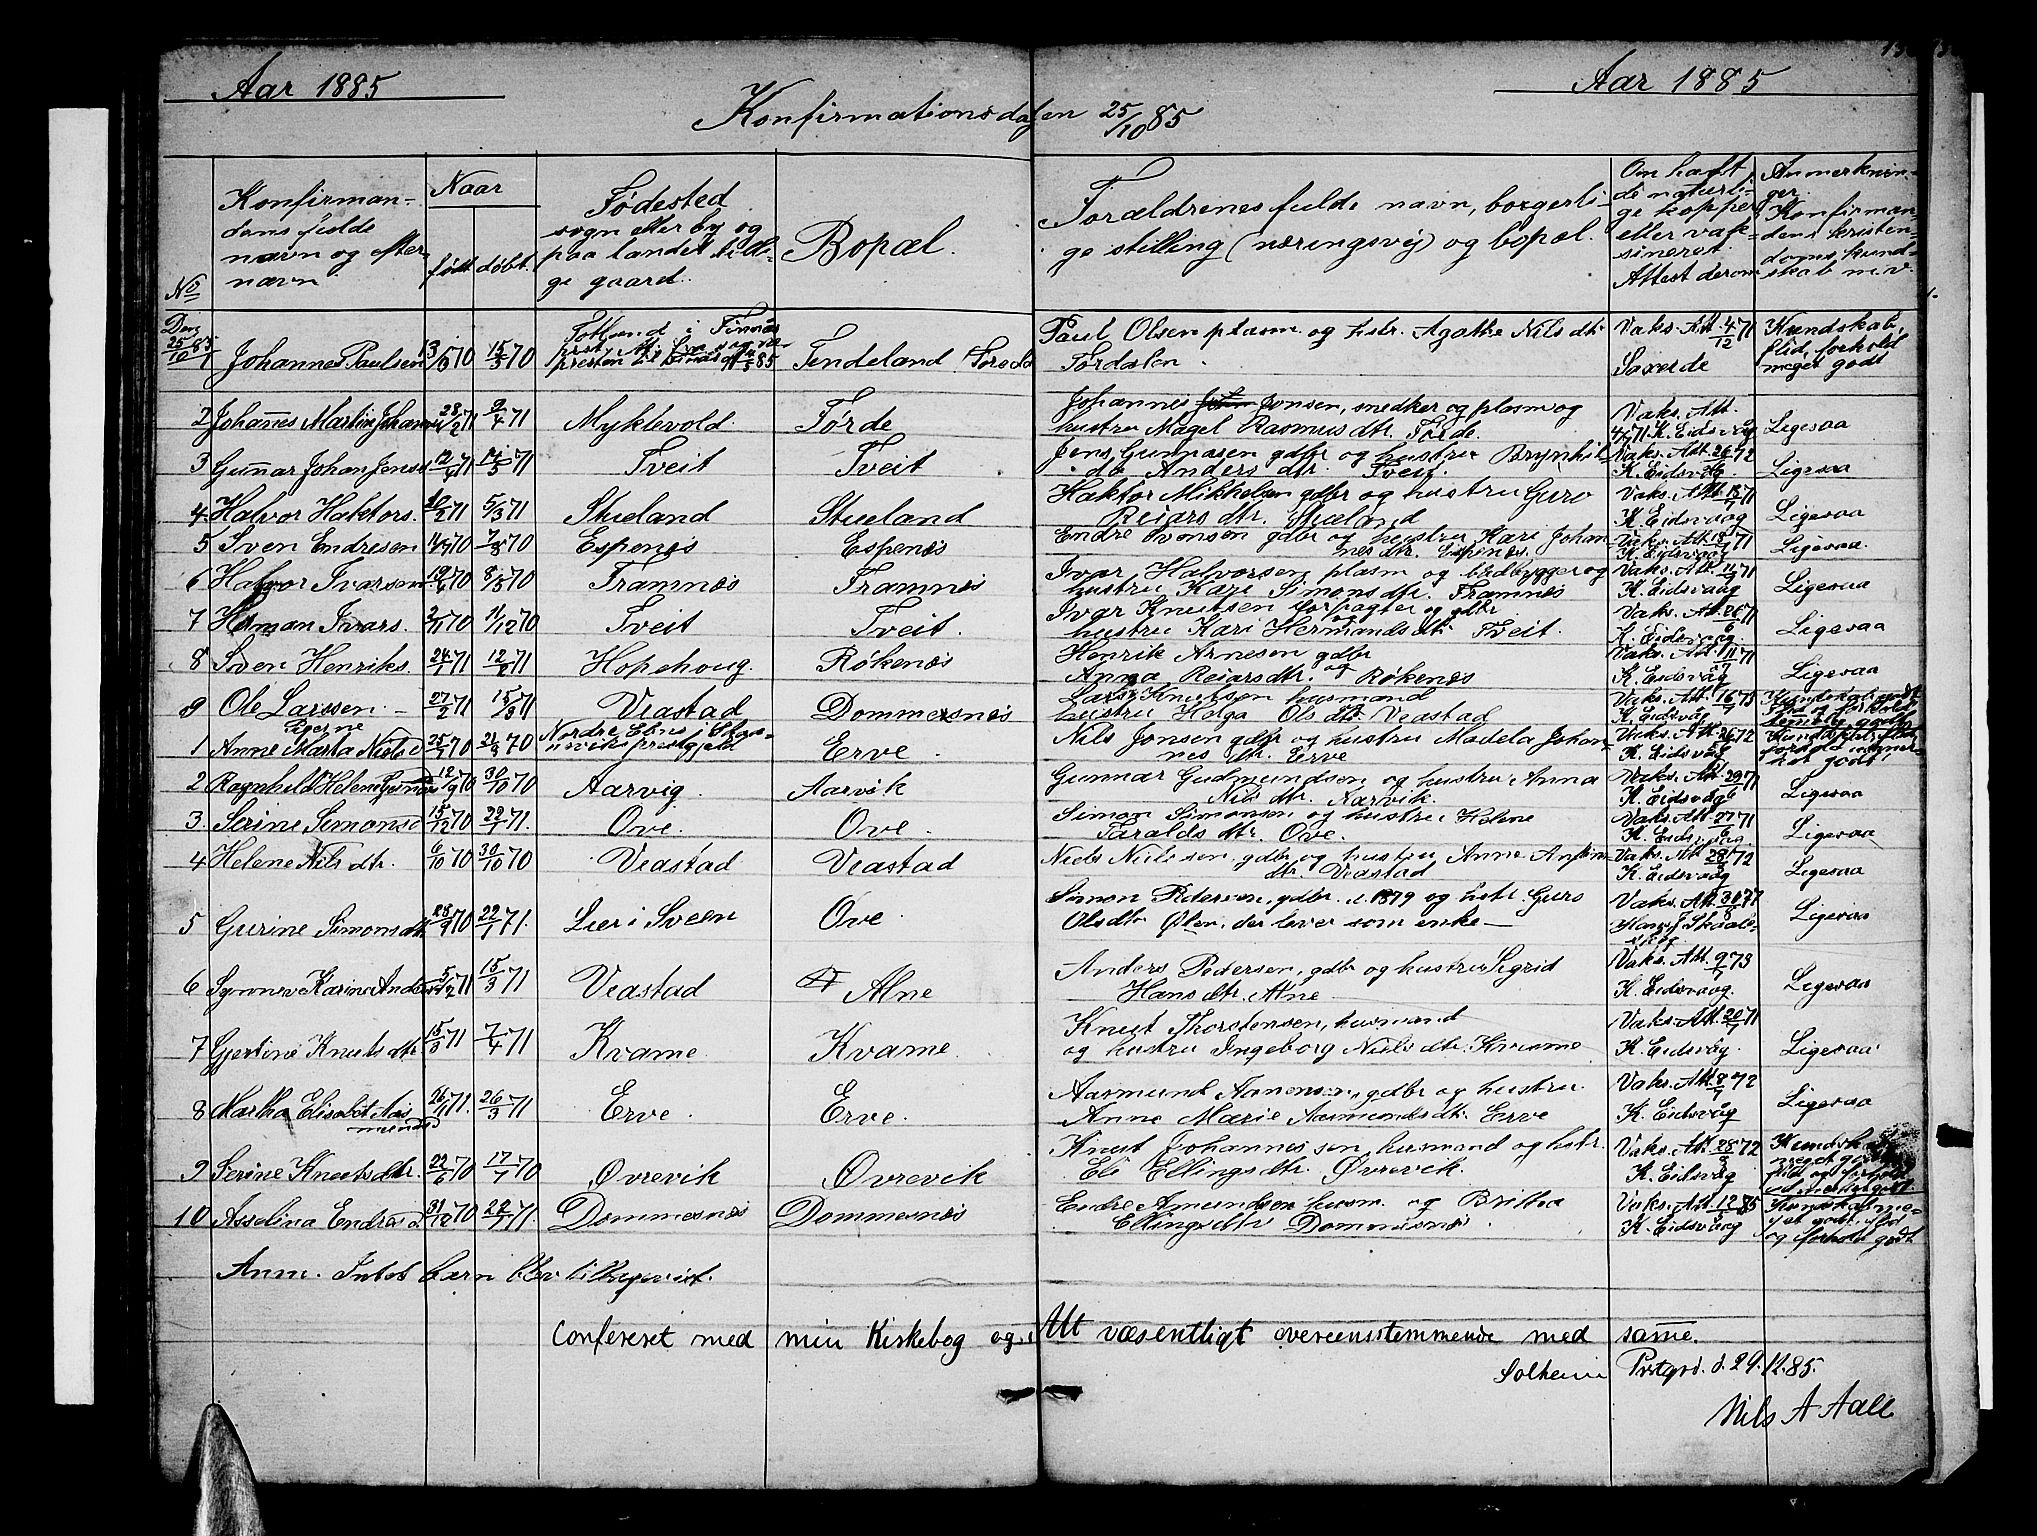 Aar 1885
Aar 1885
Konfirmationsdagen 25/10 85
No
Konfirman-
dens fulde
navn og efter-
navn
Naar
født
døbt
Fødested
sogn eller by og
paa landet tilli-
ge gaard.
Bopæl.
Forældrenes fulde navn, borgerli-
ge stilling (næringsvej) og bopæl.
Om havt
de naturli-
ge kopper
eller vak-
sineret.
Attest derom
Anmerknin-
ger.
Konfirman-
dens kristen-
doms kund-
skab m.v.
Dreng
25/10 85
1 Johannes Paulsen 13/5 70 15/5 70 Tendeland Paul Olsen plasm. og hstr. Agathe Nils dtr. Førdalen Vaks. Att. 4/12 71 Kundskab, flid, forhold meget godt
2 Johannes Martin Johann 28/2 71 9/4 71 Myklevold. Førde Johannes Jonsen, snedker og plasm og
hustru Magel Rasmus dtr. Førde. Vaks. Att. K. Eidsvåg Ligesaa
3 Gunnar Johan Jens 14/5 71 Tveit Tveit Jens Gunnasen gdbr og hustru Brynhil-
da Anders dtr. Tveit. Vaks. Att. 26/6 72 K. Eidsvåg Ligesaa
4 Halvor Haktors. 20/2 71 5/3 71 Stueland Stueland Haktor Mikkelsen gdbr og hustru Guro
Reiars dtr. Stueland Vaks. Att. K. Eidsvaag Ligesaa
5 Sven Endresen 7/8 70 Espenæs Espenæs Endre Svensen gdbr og hustru Kari Johan
nes dtr. Espenæs. Vaks. Att. K. Eidsvaag Ligesaa.
6 Halvor Ivarsen 19/4 70 8/5 70 Framnæs Framnes Ivar Halvorsen plasm og baadbygger og
hustru Kari Simons dtr. Framnes Vaks. Att. K. Eidsvaag Ligesaa
7 Herman Ivars. 2/11 70 11/12 70 Tveit Tveit. Ivar Knutsen forpagter og gdbr
hustru Kari Hermands dtr. Tveit. Vaks. Att. 26/6 71 K. Eidsvaag. Ligesaa
8 Sven Henriks. 24/1 71 Hopehoug. Røkenæs Henrik Arnesen gdbr og
Anna Reiarsdtr. Røkenæs Vaks. Att. K. Eidsvåg Ligesaa
9 Ole Larssen. 27/2 71 15/3 71 Veastad Dommesnæs Lars Knutsen husmand
hustru Helga Ols dtr. Veastad Vaks. Att. K. Eidsvåg
Pigerne
1 Anne Marta Niels d 70 Erve Nils Jonsen gdbr og hustru Madela Johan-
nes dtr. Erve Vaks. Att. K. Eidsvåg
2 Ragnhild Helene 12/9 70 30/10 70 Aarvig. Aarvik Gunnar Gudmundsen og hustru Anna
Nils dtr. Aarvik. Vaks. Att. 29/6 71 K. Eidsvåg Ligesaa
3. Serine Simons d 15/12 70 22/1 71. Ove. Ove. Simon Simonsen og hustru Helene
Taralds dtr. Ove. Vaks. Att. 27/6 71 Ligesaa
4 Helene Nils dtr. 6/10 70 30/10 70 Veastad Veastad Niels Nielssen gdbr og hustru Anne
dtr. Veastad Vaks. Att. K. Eidsvaag Ligesaa
5 Gurine Simons dtr. 70 22/1 71. Lier i Sveen Ove. Simon Pedersen, gdbr. d. 1879 og hstr. Guro
Olsdtr. der lever som enke — Vaks. Att. Ligesaa
6 Synneve Karine Anders 5/2 71 15/3 71 Veastad Alne Anders Pedersen, gdbr og hustru Sigrid
Hans dtr. Alne Vaks. Att. 9/7 73 K. Eidsvaag. Ligesaa
7 Gjertine Knuts dtr. 15/3 71 7/4 71 Kvame. Kvame. Knut Thorstensen, husmand
og hustru Ingeborg Niels dtr. Kvame Vaks. Att. 20/7 71 K. Eidsvåg. Ligesaa
8 Martha Elisabet Aas
munds 71. 26/3 71 Erve. Erve. Aasmund gdbr og hustru
Anne Marie Aamunds dtr. Erve Vaks. Att. 8/7 72 K. Eidsvåg Ligesaa
9 Serine Knutsdtr. 22/6 70 17/7 70 Øvrevik Øvrevik Knut Johannessen, husmand og hstr.
Eli Ellings dtr. Øvrevik. Vaks. Att. K. Eidsvåg
10 Asselina Endres d 31/12 70 22/1 71. Dommesnæs Dommesnæs Endre Amundsen husm. og Britha
Ellings dtr. Dommesnæs. Vaks. Att. K. Eidsvaag Kundskab me-
get godt. flid
og forhold godt
Anm. Intet barn blev tilbagevist.
Confereret med min Kirkebog og alt væsentligt overeensstemmende med samme.
Solheim Prstgrd. d. 29.12.85.
Nils A Aall